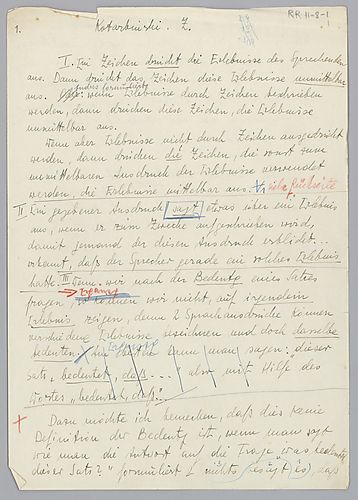 1.
Kotarbiński. Z.
RR-11-8-1
I. Ein Zeichen drückt die Erlebnisse des Sprechenden
aus. Dann drückt das Zeichen diese Erlebnisse unmittelbar
anders formuliert
aus. wenn Erlebnisse durch Zeichen beschrieben
werden, dann drücken diese Zeichen, die Erlebnisse
unmittelbar aus.
Wenn aber Erlebnisse nicht durch Zeichen ausgedrückt
werden, dann drücken die Zeichen, die sonst zum
unmittelbaren Ausdruck der Erlebnisse verwendet
werden, die Erlebnisse mittelbar aus. siehe Rückseite
II Ein gegebener Ausdruck sagt etwas über ein Erlebnis
aus, wenn er zum Zwecke aufgeschrieben wird,
damit jemand der diesen Ausdruck erblickt...
erkennt, daß der Sprecher gerade ein solches Erlebnis
hatte. III Wenn wir nach der Bedeutg eines Satzes
fragen, wir nicht, auf irgendein
Erlebnis zeigen, denn 2 Sprachausdrücke können
verschiedene Erlebnisse bezeichnen und doch dasselbe
bedeuten. man sagen: "dieser
Satz "bedeutet, daß...." also mit Hilfe des
Wortes "bedeutet, daß".
Dazu möchte ich bemerken, daß dies keine
Definition der Bedeutg ist, wenn man sagt
wie man die Antwort auf die Frage "was bedeutet
dieser Satz?" formuliert nichts gesagt ist, daß